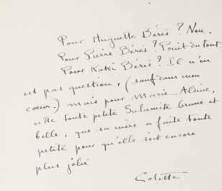 Pour Huguette Bérès ? Non.
Pour Pierre Bérès ? Point du tout
Pour Kati Bérès ? Il n'en
est pas question, (sauf dans mon
cœur,) mais pour Marie-Aline,
une toute petite Sulamite brune et
belle, que sa mère a faite toute
petite pour qu'elle soit encore
plus jolie
Colette